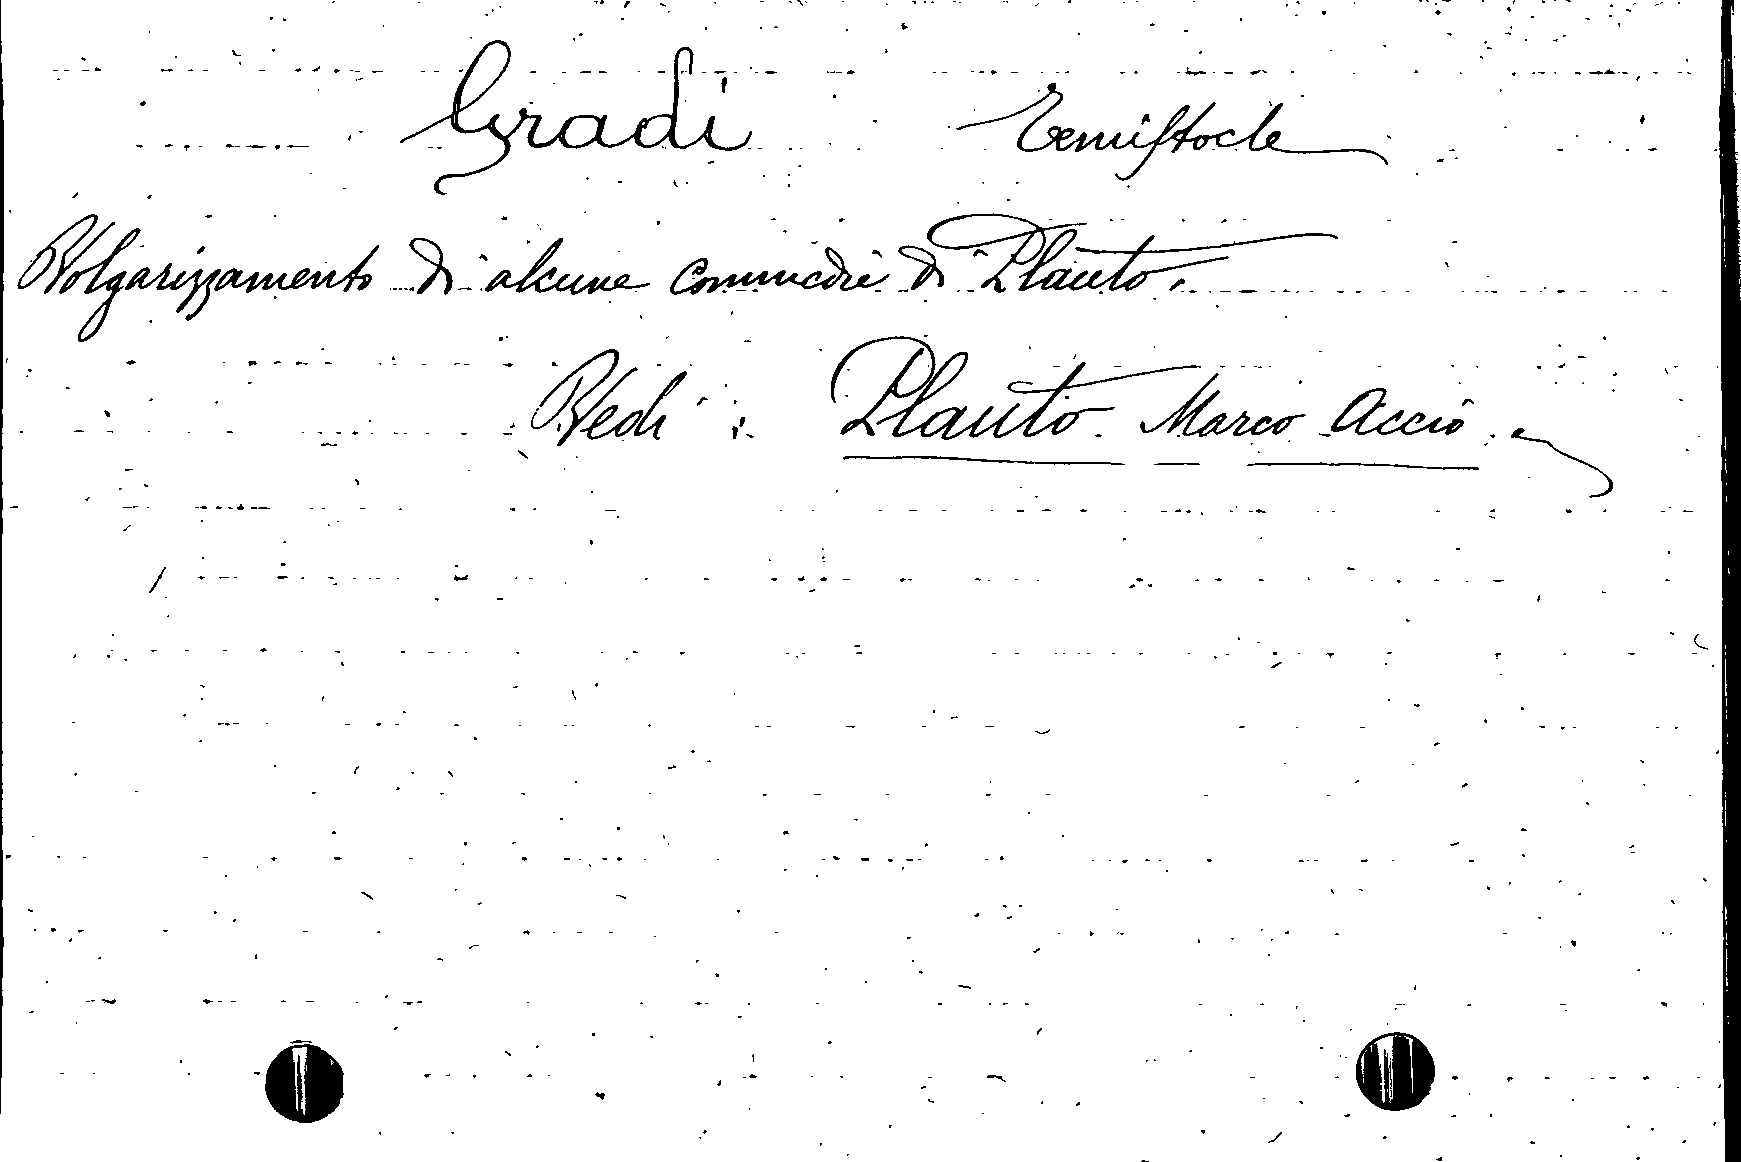 Gradi Temistocle
Volgarizzamento di alcune commedie di Plauto.
Vedi: Plauto Marco Accio.